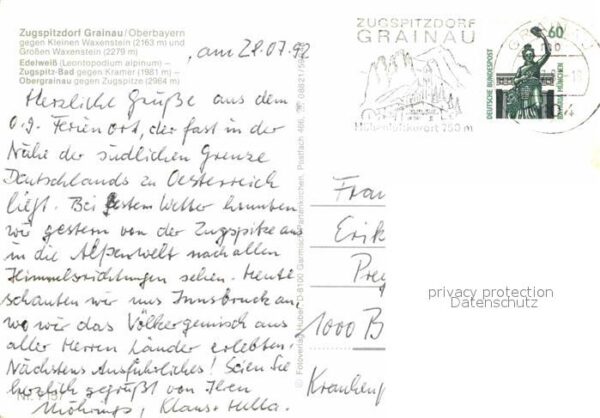 Zugspitzdorf Grainau/Oberbayern
gegen Kleinen Waxenstein (2163 m) und
Großen Waxenstein (2279 m)
Edelweiß (Leontopodium alpinum) –
Zugspitz-Bad gegen Kramer (1981 m) –
Obergrainau gegen Zugspitze (2964 m)
, am 28.07.92
Herzliche Grüße aus dem
o.g. Ferienort, der fast in der
Nähe der südlichen Grenze
Deutschlands zu Oesterreich
liegt. Bei bestem Wetter konnten
wir gestern von der Zugspitze aus
in die Alpenwelt nach allen
Himmelsrichtungen sehen. Heute
schauten wir uns Innsbruck an,
wo wir das Völkergemisch aus
aller Herren Länder erlebten.
Nächstens Ausführliches! Seien Sie
herzlich gegrüßt von Ihren
Möhrings, Klaus + Hella.
© Fotoverlag Huber, D-8100 Garmisch-Partenkirchen, Postfach 466,
ZUGSPITZDORF
GRAINAU
Höhenluftkurort 750 m
GRAINAU
60
DEUTSCHE BUNDESPOST
MÜNCHEN
Frau
Erik
Pre
1000 B
Kranken
privacy protection
Datenschutz